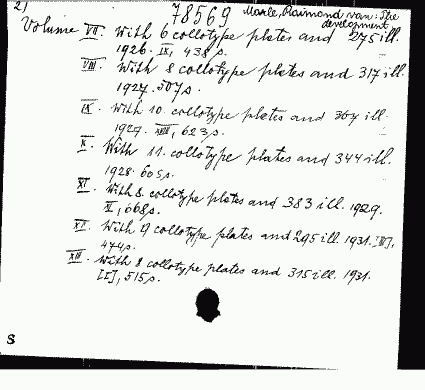 2)
78569 Marle, Raimond van: The
development
Volume VII. With 6 collotype plates and 275 ill.
1926. IX, 438 s.
VIII. With 8 collotype plates and 317 ill.
1927. 507 s.
IX. With 10 collotype plates and 367 ill.
1927. XIII, 623 s.
X. With 11 collotype plates and 344 ill.
1928. 605 s.
XI. With 8 collotype plates and 383 ill. 1929.
X, 668 s.
XII. With 9 collotype plates and 295 ill. 1931. [III],
474 s.
XIII. With 8 collotype plates and 315 ill. 1931.
[I], 515 s.
S